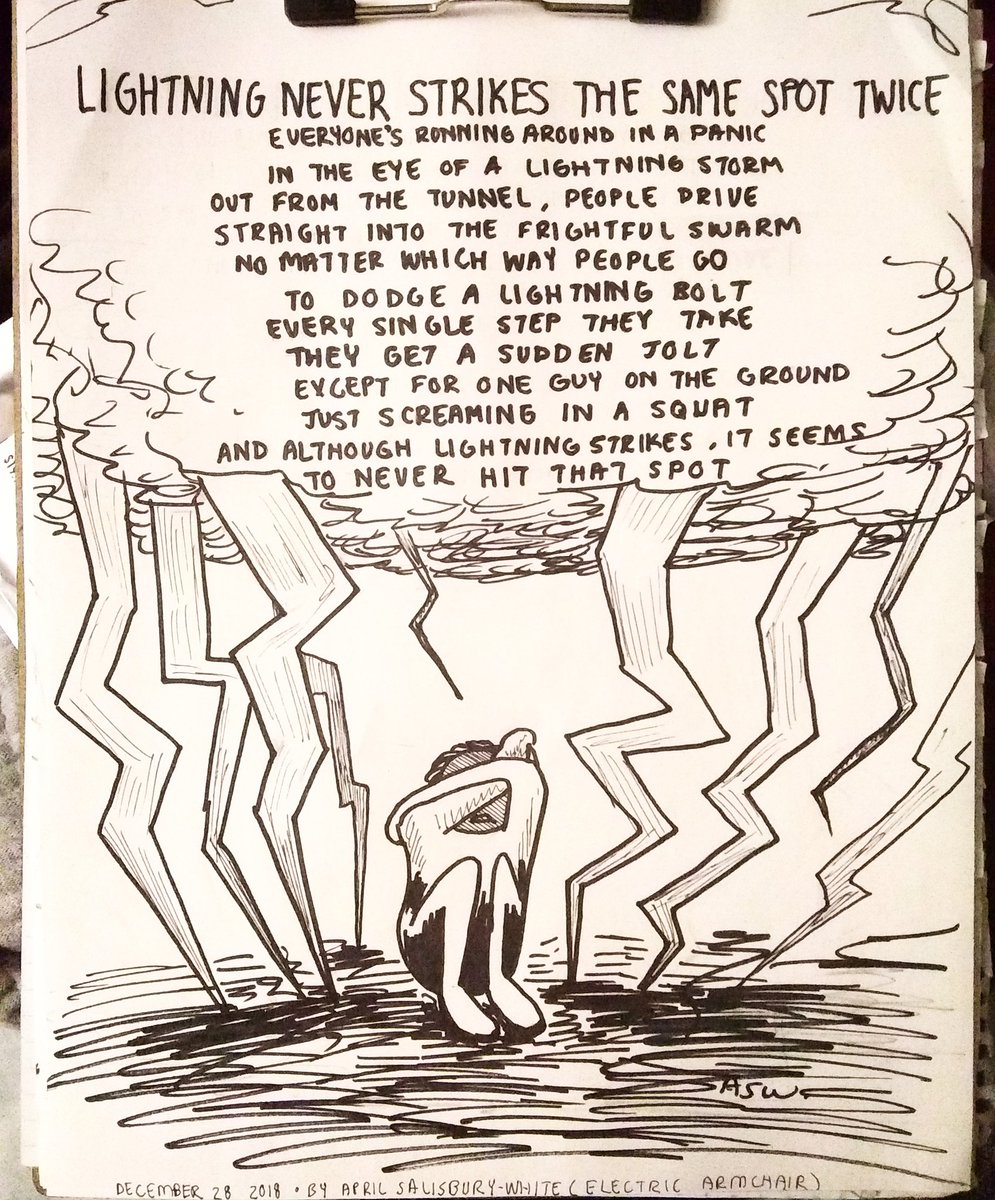 LIGHTNING NEVER STRIKES THE SAME SPOT TWICE
EVERYONE'S RUNNING AROUND IN A PANIC
IN THE EYE OF A LIGHTNING STORM
OUT FROM THE TUNNEL, PEOPLE DRIVE
STRAIGHT INTO THE FRIGHTFUL SWARM
NO MATTER WHICH WAY PEOPLE GO
TO DODGE A LIGHTNING BOLT
EVERY SINGLE STEP THEY TAKE
THEY GET A SUDDEN JOLT
EXCEPT FOR ONE GUY ON THE GROUND
JUST SCREAMING IN A SQUAT
AND ALTHOUGH LIGHTNING STRIKES, IT SEEMS
TO NEVER HIT THAT SPOT
ASW
DECEMBER 28 2018 • BY APRIL SALISBURY-WHITE (ELECTRIC ARMCHAIR)